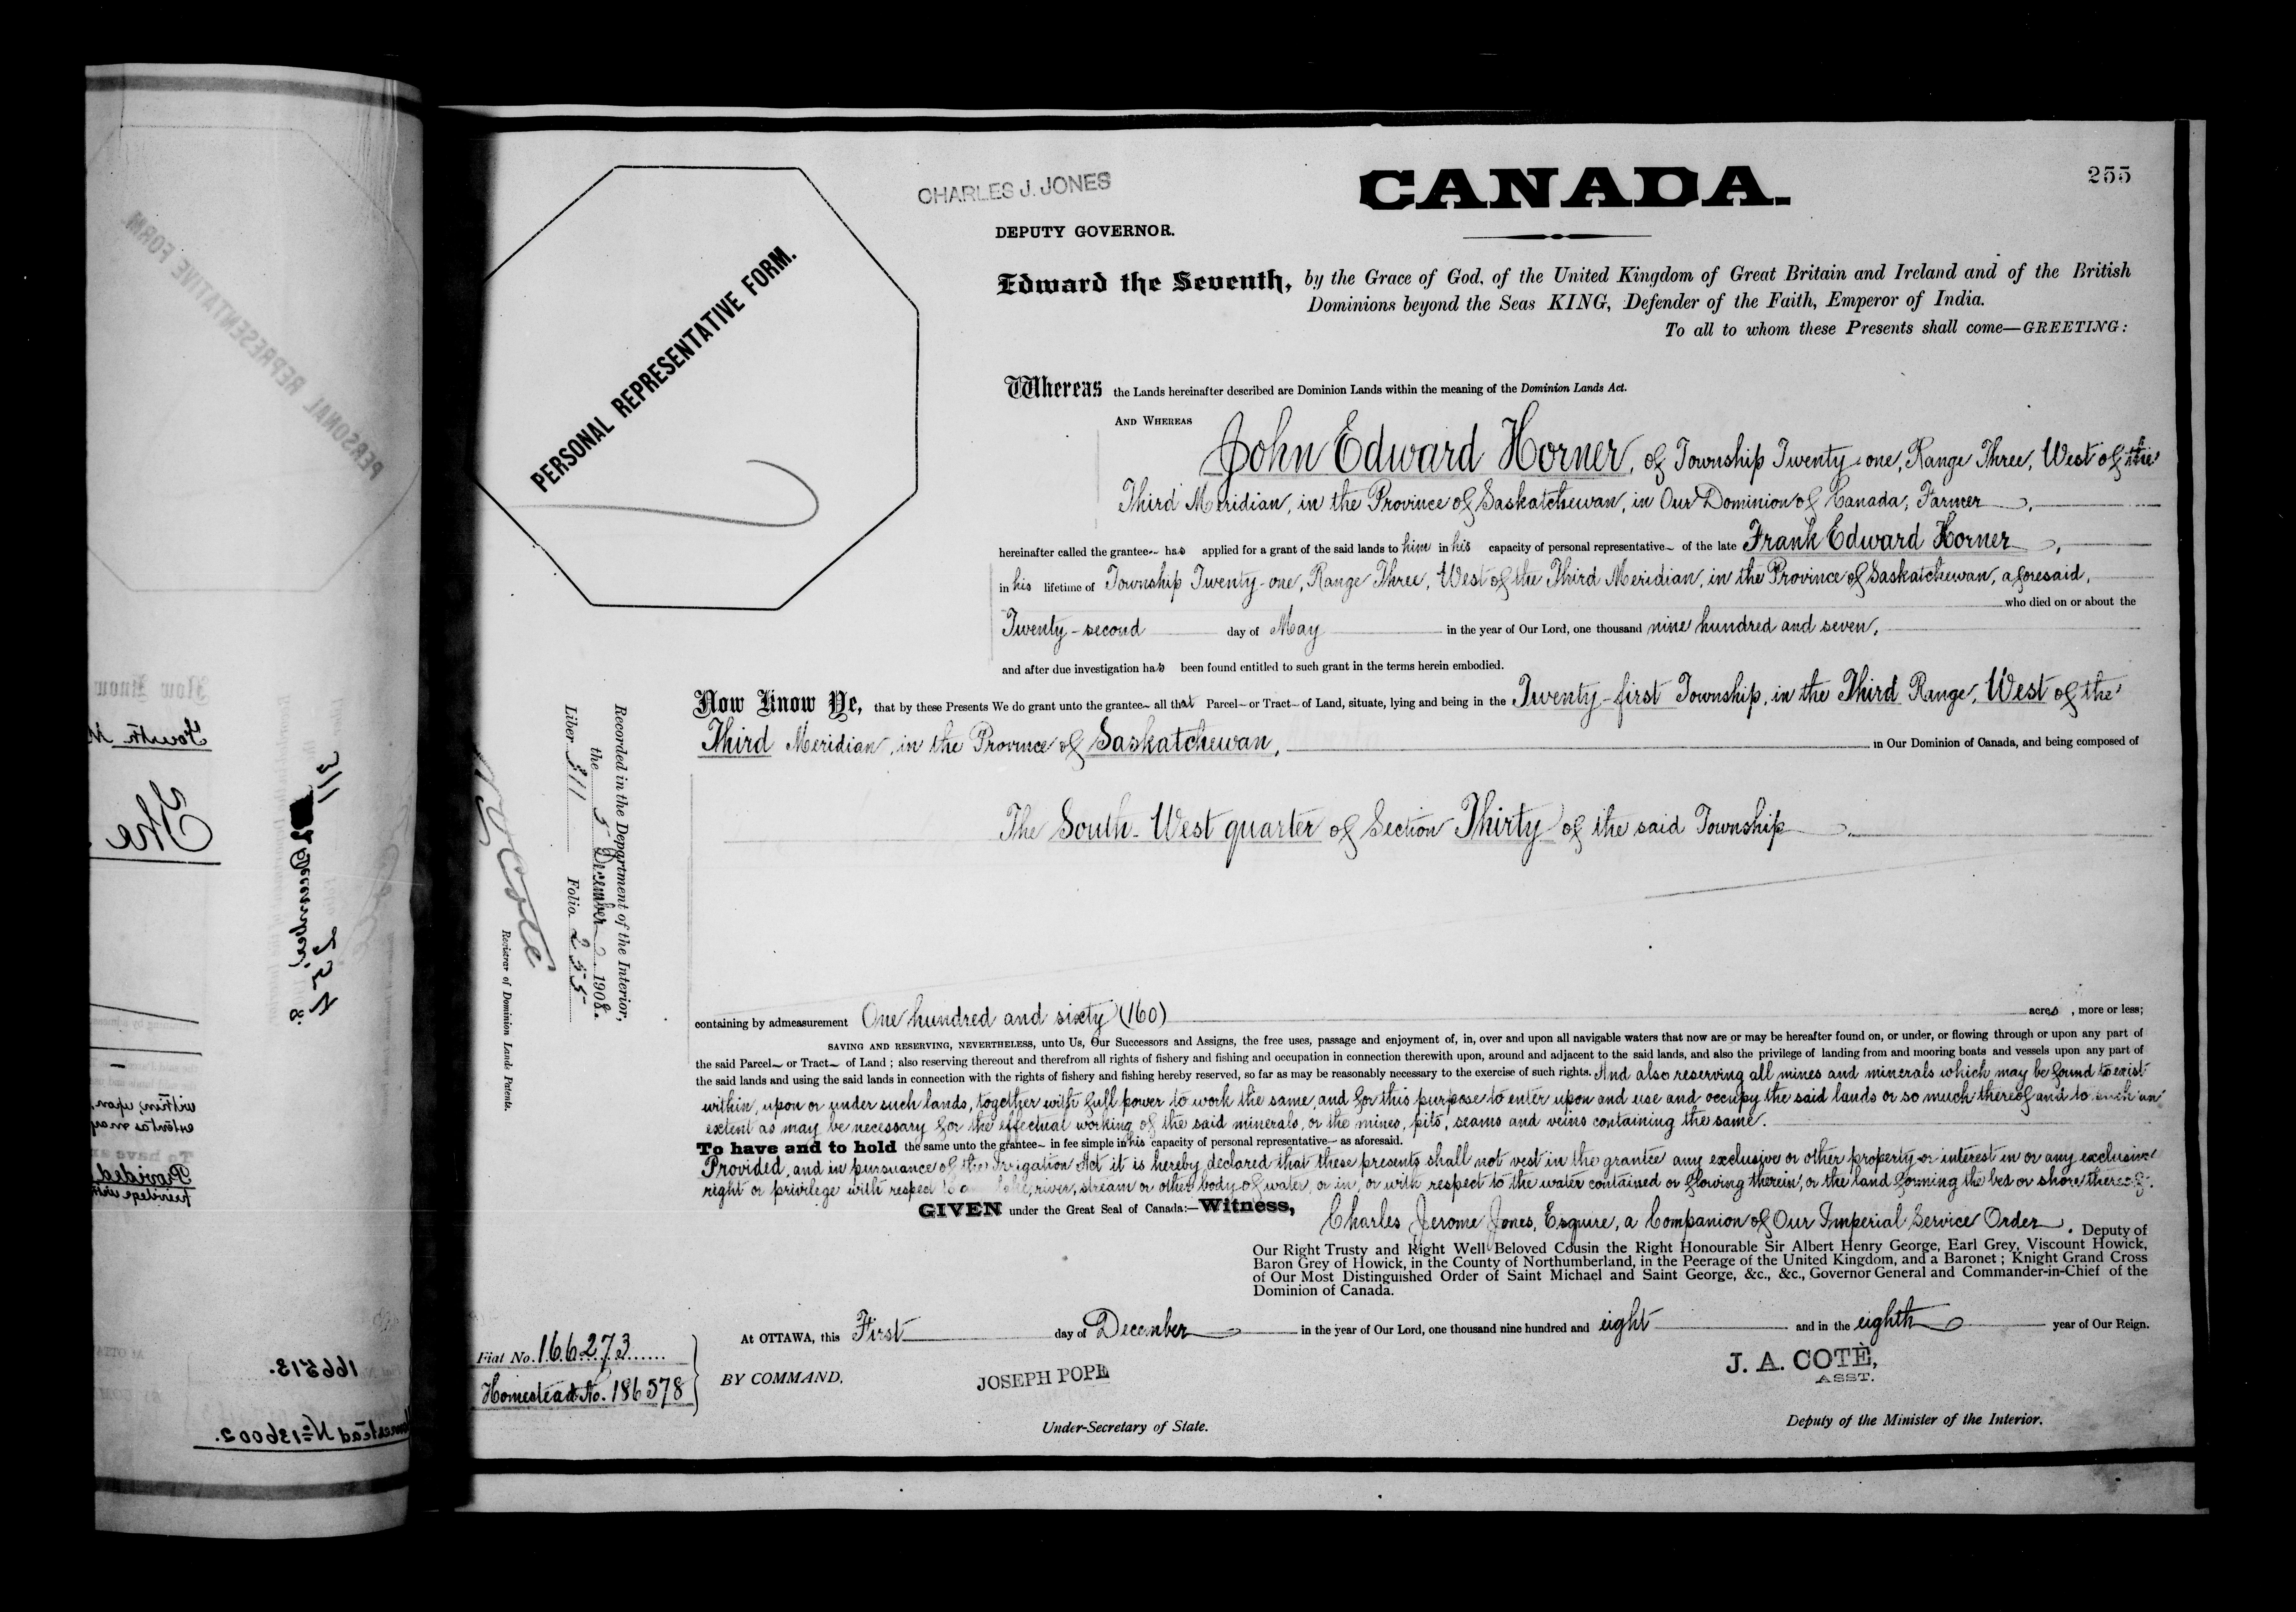 255
CHARLES J. JONES
CANADA.
DEPUTY GOVERNOR.
PERSONAL REPRESENTATIVE FORM.
Edward the Seventh, by the Grace of God, of the United Kingdom of Great Britain and Ireland and of the British
Dominions beyond the Seas KING, Defender of the Faith, Emperor of India.
To all to whom these Presents shall come—GREETING:
Whereas the Lands hereinafter described are Dominion Lands within the meaning of the Dominion Lands Act.
AND WHEREAS
John Edward Horner, of Township Twenty-one, Range Three, West of the
Third Meridian, in the Province of Saskatchewan, in Our Dominion of Canada, Farmer
hereinafter called the grantee has applied for a grant of the said lands to him in his capacity of personal representative of the late Frank Edward Horner,
in his lifetime of Township Twenty-one, Range Three, West of the Third Meridian, in the Province of Saskatchewan, aforesaid,
who died on or about the
Twenty-second day of May in the year of Our Lord, one thousand nine hundred and seven,
and after due investigation has been found entitled to such grant in the terms herein embodied.
Now Know Ye, that by these Presents We do grant unto the grantee all that Parcel or Tract of Land, situate, lying and being in the Twenty-first Township, in the Third Range, West of the
Third Meridian, in the Province of Saskatchewan, in Our Dominion of Canada, and being composed of
The South-West quarter of Section Thirty of the said Township.
containing by admeasurement One hundred and sixty (160) acres, more or less;
SAVING AND RESERVING, NEVERTHELESS, unto Us, Our Successors and Assigns, the free uses, passage and enjoyment of, in, over and upon all navigable waters that now are or may be hereafter found on, or under, or flowing through or upon any part of
the said Parcel or Tract of Land; also reserving thereout and therefrom all rights of fishery and fishing and occupation in connection therewith upon, around and adjacent to the said lands, and also the privilege of landing from and mooring boats and vessels upon any part of
the said lands and using the said lands in connection with the rights of fishery and fishing hereby reserved, so far as may be reasonably necessary to the exercise of such rights. And also reserving all mines and minerals which may be found to exist
within, upon or under such lands, together with full power to work the same, and for this purpose to enter upon and use and occupy the said lands or so much thereof and to such an
extent as may be necessary for the effectual working of the said minerals, or the mines, pits, seams and veins containing the same.
To have and to hold the same unto the grantee in fee simple in his capacity of personal representative as aforesaid.
Provided, and in pursuance of the Irrigation Act it is hereby declared that these presents shall not vest in the grantee any exclusive or other property or interest in or any exclusive
right or privilege with respect to lake, river, stream or other body of water, or in, or with respect to the water contained or flowing therein, or the land forming the bed or shore thereof.
GIVEN under the Great Seal of Canada:—Witness, Charles Jerome Jones, Esquire, a Companion of Our Imperial Service Order. Deputy of
Our Right Trusty and Right Well-Beloved Cousin the Right Honourable Sir Albert Henry George, Earl Grey, Viscount Howick,
Baron Grey of Howick, in the County of Northumberland, in the Peerage of the United Kingdom, and a Baronet; Knight Grand Cross
of Our Most Distinguished Order of Saint Michael and Saint George, &c., &c., Governor General and Commander-in-Chief of the
Dominion of Canada.
At OTTAWA, this First day of December in the year of Our Lord, one thousand nine hundred and eight and in the eighth year of Our Reign.
BY COMMAND,
JOSEPH POPE
Under-Secretary of State.
J. A. COTÉ,
ASST.
Deputy of the Minister of the Interior.
Fiat No. 166273
Homestead No. 186578
Recorded in the Department of the Interior,
the 5 December 1908.
Liber 311 Folio 255
Coté
Registrar of Dominion Lands Patents.